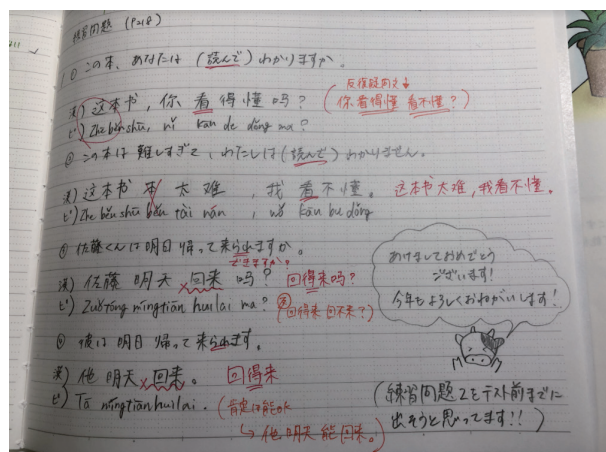 練習問題 (P218)
1 ① この本、あなたは (読んで) わかりますか。
反復疑問文↓
漢) 这本书，你 看得懂吗？ (你看得懂 看不懂？)
ピ) Zhè běn shū, nǐ kàn de dǒng ma?
② この本は 難しすぎて、わたしは (読んで) わかりません。
漢) 这本书 本 太难 ，我 看不懂。 这本书太难，我看不懂。
ピ) Zhè běn shū běn tài nán , wǒ kàn bu dǒng
① 佐藤くんは明日 帰って来られますか。
できますか?
漢) 佐藤 明天 回来 吗？ 回得来吗？
ピ) Zuǒténg míngtiān huílai ma? (回得来 回不来？)
② 彼は 明日 帰って来られます。
漢) 他 明天 回来。 回得来
ピ) Tā míngtiān huílai. (肯定は能ok
↳ 他 明天 能 回来。)
あけましておめでとう
ございます!
今年もよろしくおねがいします!
(練習問題2をテスト前までに
出そうと思ってます!!)